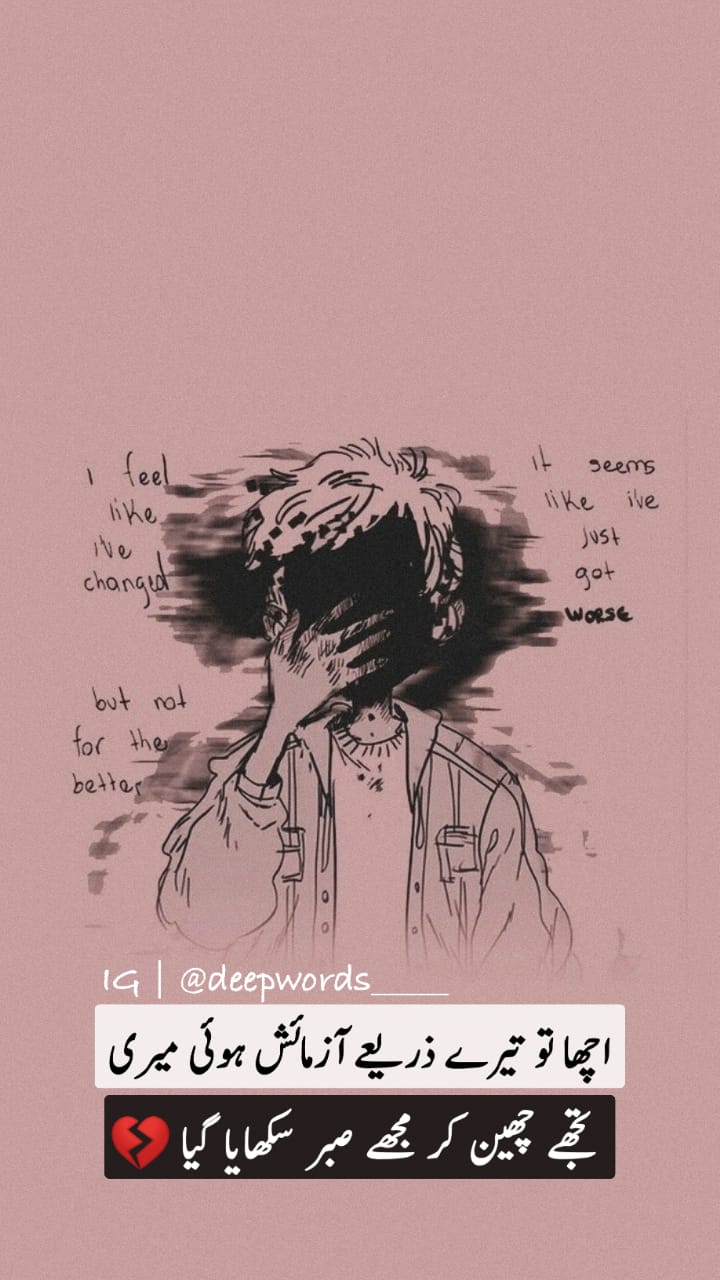 i feel
like
i've
changed
but not
for the
better
it seems
like i've
just
got
WORSE
IG | @deepwords____
اچھا تو تیرے ذریعے آزمائش ہوئی میری
تجھے چھین کر مجھے صبر سکھایا گیا 💔